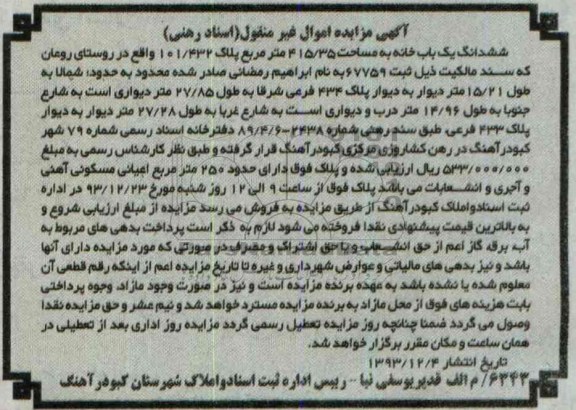 آگهی مزایده اموال غیر منقول(اسناد رهنی)
ششدانگ یک باب خانه به مساحت ۴۱۵/۳۵ متر مربع پلاک ۱۰۱/۴۳۲ واقع در روستای روعان
که سند مالکیت ذیل ثبت ۶۷۷۵۹ به نام ابراهیم رمضانی صادر شده محدود به حدود: شمالا به
طول ۱۵/۲۱ متر دیوار به دیوار پلاک ۴۳۴ فرعی شرقا به طول ۲۷/۸۵ متر دیواری است به شارع
جنوبا به طول ۱۴/۹۶ متر درب و دیواری است به شارع غربا به طول ۲۷/۲۸ متر دیوار به دیوار
پلاک ۴۳۳ فرعی. طبق سند رهنی شماره ۲۴۳۸-۸۹/۴/۶ دفترخانه اسناد رسمی شماره ۷۹ شهر
کبودرآهنگ در رهن کشاورزی مرکزی کبودرآهنگ قرار گرفته و طبق نظر کارشناس رسمی به مبلغ
۵۳۳/۰۰۰/۰۰۰ ریال ارزیابی شده و پلاک فوق دارای حدود ۲۵۰ متر مربع اعیانی مسکونی آهنی
و آجری و انشعابات می باشد پلاک فوق از ساعت ۹ الی ۱۲ روز شنبه مورخ ۹۳/۱۲/۲۳ در اداره
ثبت اسنادواملاک کبودرآهنگ از طریق مزایده به فروش می رسد مزایده از مبلغ ارزیابی شروع و
به بالاترین قیمت پیشنهادی نقدا فروخته می شود لازم به ذکر است پرداخت بدهی های مربوط به
آب، برق، گاز اعم از حق انشعاب و یا حق اشتراک و مصرف در صورتی که مورد مزایده دارای آنها
باشد و نیز بدهی های مالیاتی و عوارض شهرداری و غیره تا تاریخ مزایده اعم از اینکه رقم قطعی آن
معلوم شده یا نشده باشد به عهده برنده مزایده است و نیز در صورت وجود مازاد، وجوه پرداختی
بابت هزینه های فوق از محل مازاد به برنده مزایده مسترد خواهد شد و نیم عشر و حق مزایده نقدا
وصول می گردد ضمنا چنانچه روز مزایده تعطیل رسمی گردد مزایده روز اداری بعد از تعطیلی در
همان ساعت و مکان مقرر برگزار خواهد شد.
تاریخ انتشار ۱۳۹۳/۱۲/۴
۶۳۴۳/ م الف قدیر یوسفی نیا - رییس اداره ثبت اسنادواملاک شهرستان کبودرآهنگ